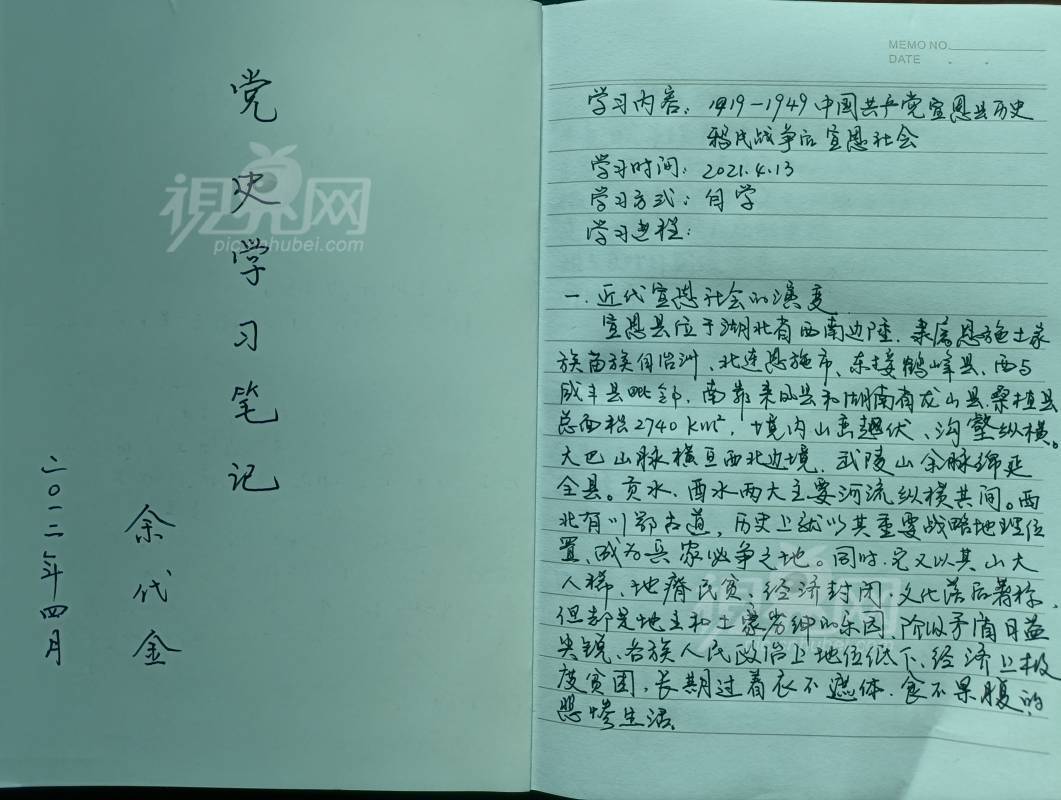 党史学习笔记
余代金
二〇二一年四月
視界网
picchubei.com
MEMO NO.
DATE
学习内容：1919-1949中国共产党宣恩县历史
鸦片战争后宣恩社会
学习时间：2021.4.13
学习方式：自学
学习过程：
一、近代宣恩社会的演变
宣恩县位于湖北省西南边陲，隶属恩施土家
族苗族自治州、北连恩施市、东接鹤峰县、西与
咸丰县毗邻，南靠来凤县和湖南省龙山县、桑植县
总面积2740km²，境内山峦起伏、沟壑纵横。
大巴山脉横亘西北边境，武陵山余脉绵延
全县。贡水、酉水两大主要河流纵横其间。西
北有川鄂古道，历史上就以其重要战略地理位
置，成为兵家必争之地。同时，它又以其山大
人稀、地瘠民贫、经济封闭、文化落后著称，
但却是地主和土豪劣绅的乐园，阶级矛盾日益
尖锐、各族人民政治上地位低下、经济上极
度贫困，长期过着衣不遮体，食不果腹的
悲惨生活。
視界网